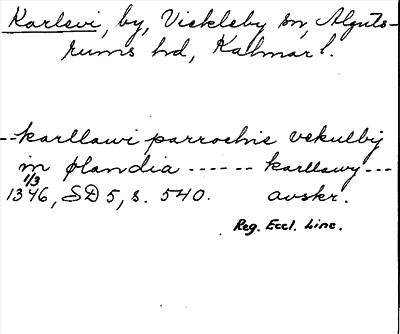 Karlevi, by, Vickleby sn, Alguts-
rums hd, Kalmar l.
--karllawi parrochie vekulby
in ølandia ------ karllawy---
1/3
1346, SD 5, s. 540. avskr.
Reg. Eccl. Linc.